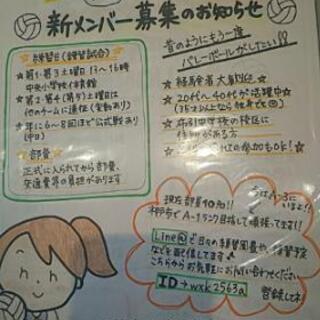 新メンバー募集のお知らせ
昔のようにもう一度
バレーボールがしたい!!
☆練習日(練習試合)
☆第1・第3土曜日 13〜16時
中央小学校体育館
☆第2・第4(第5)土曜日は
他のチームに遠征(変動あり)
☆年に6〜8回ほど公式戦あり
☆部費
正式に入られてから部費、
交通費等の負担があります
☆経験者大歓迎
☆20代〜40代が活躍中☆
中学校の校区に
ある方
の参加もOK!☆
現在部員10名!!
神戸でA-1ランク目指して頑張ってます!!
Line@で日々の練習風景や練習予定
などを配信してます
こちらからお気軽にお問い合わせください
ID→wxk2563a
登録してネ!